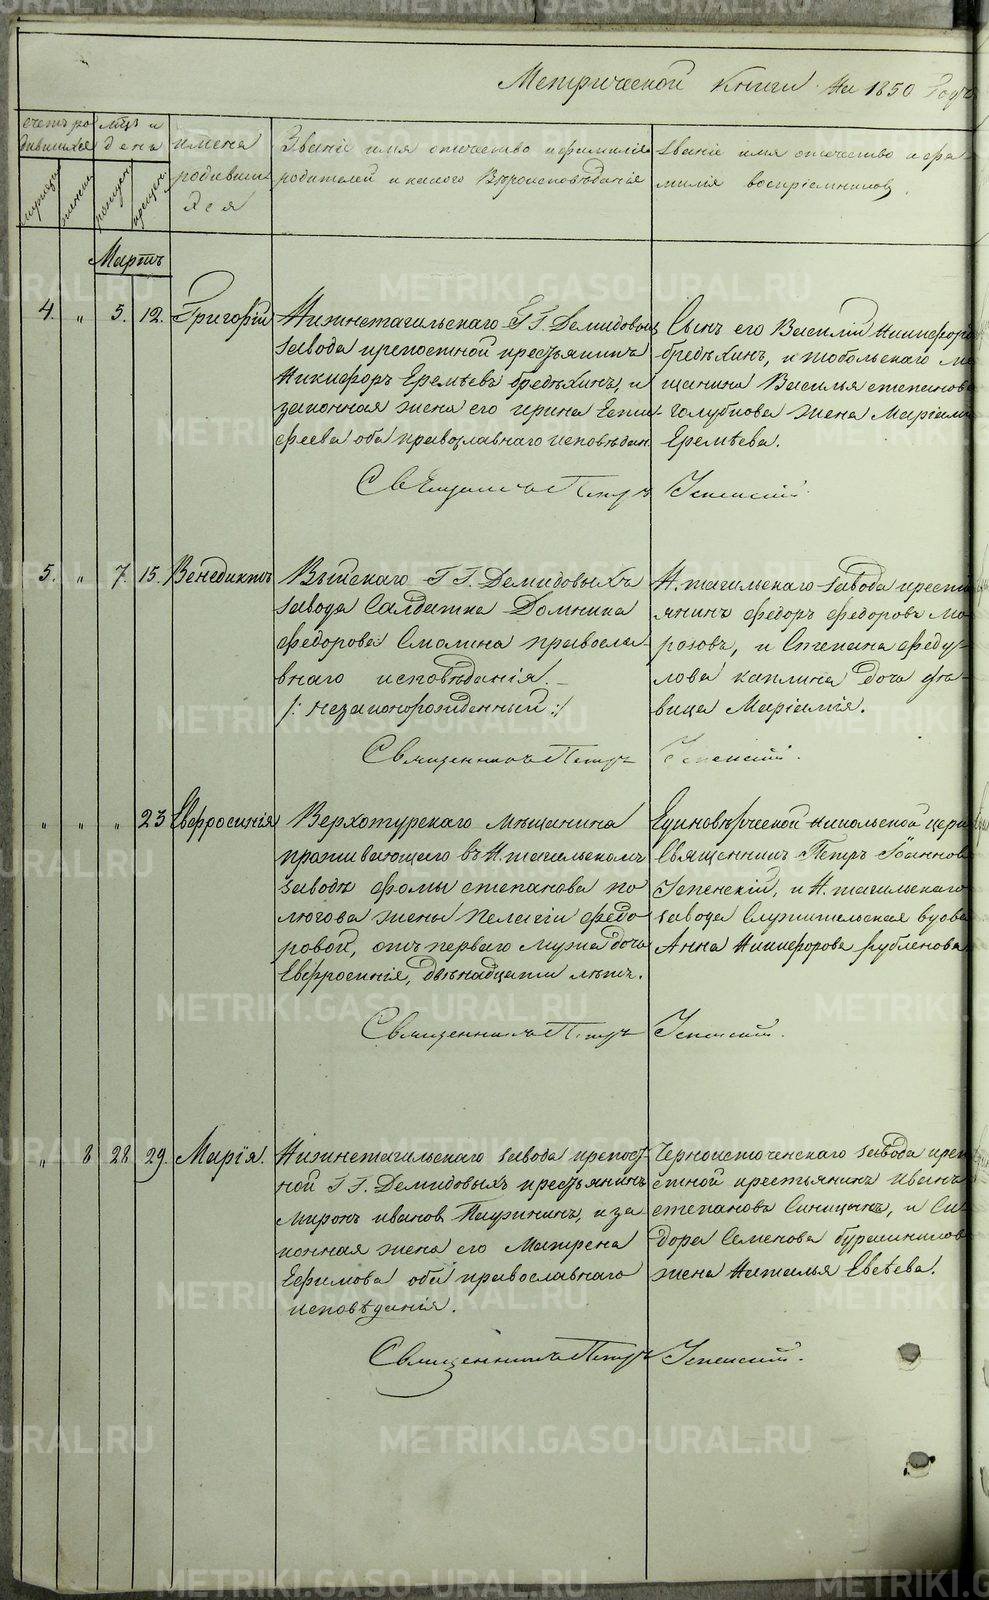 METRIKI.GASO-URAL.RU
Метрической Книги На 1850 Годъ
счетъ ро
дившихся
мужеска
женска
мѣсяцъ и
день
рожденія
крещенія
имена
родивши
хся
Званіе имя отчество и фамилія
родителей и какого Вѣроисповѣданія
званіе имя отчество и фа-
милія воспріемниковъ.
Мартъ
4. „ 5. 12. Григорій
Нижнетагильскаго Г.Г. Демидовыхъ
завода крепостной крестьянинъ
Никифоръ Еремѣевъ бредихинъ, и
законная жена его ирина
феева оба православнаго исповѣдан
Сынъ его Василій Никифоро
бредихинъ, и тобольскаго мѣ
щанина Василья степанова
голубкова жена Маріамія
Еремѣева.
Священникъ Петръ Успенскій.
5. „ 7. 15. Венедиктъ
Выйскаго Г.Г. Демидовыхъ
завода Салдатка Домника
федорова Смолина правосла-
внаго исповѣданія.
/: незаконорожденный :/
Н. тагильскаго завода крестья
янинъ федоръ федоровъ Мо
розовъ, и Степана феду-
лова каплина дочь дѣ-
вица Маріамія.
Священникъ Петръ Успенскій.
„ „ „ 23 Евфросинія
Верхотурскаго мѣщанина
проживающаго въ Н. тагильскомъ
заводѣ фомы степанова по
люгова жены Пелагіи федо
ровой, отъ перваго мужа дочь
Евфросинія, двѣнадцати лѣтъ.
Единовѣрческой Никольской церк
Священникъ Петръ Іоанновъ
Успенскій, и Н. тагильскаго
завода Служительская вдова
Анна Никифорова рубленова
Священникъ Петръ Успенскій.
„ 8 28 29. Марія.
Нижнетагильскаго завода крепост-
ной Г.Г. Демидовыхъ крестьянинъ
миронъ ивановъ Паукинъ, и за
конная жена его Матрена
Ефимова оба православнаго
исповѣданія.
Черноисточенскаго завода креп
стной крестьянинъ иванъ
степановъ Синицынъ, и Си-
дора Семенова бурашникова
жена Наталья Евсѣева.
Священникъ Петръ Успенскій.